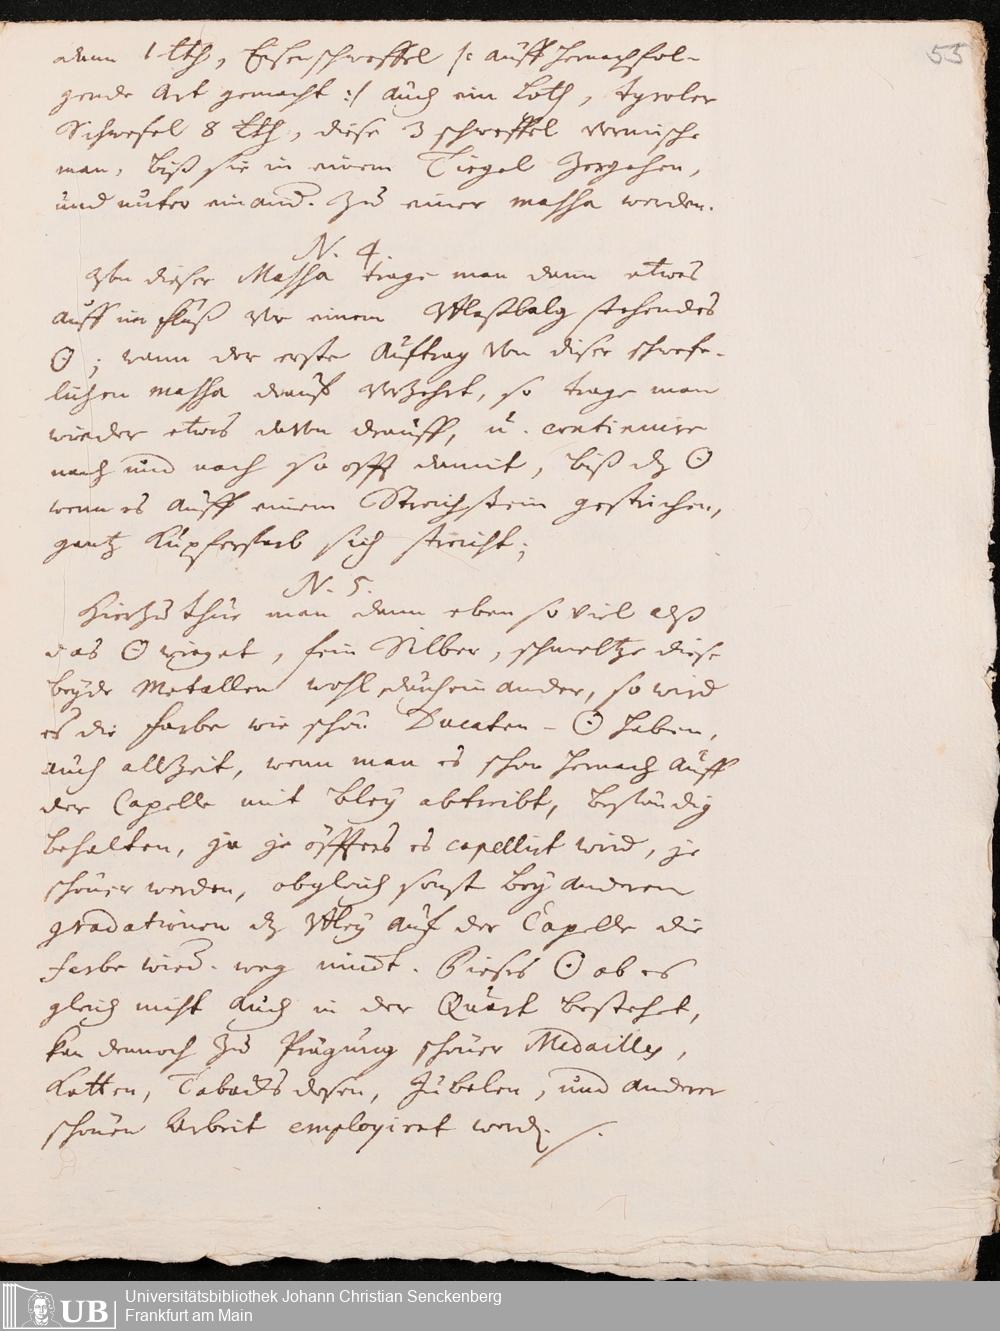 53
dann 1 Lth, Eisenschweffel /: auff hernachfol-
gende Art gemacht :/ auch ein Loth, tyroler
Schwefel 8 Lth, diese 3 schweffel vermische
man, biß sie in einem Tiegel zergehen,
und unter einand. zu einer massa werden.
N. 4
Von dieser Massa trage man dann etwas
auff im fluß vor einem Blaßbalg stehendes
☉; wann der erste Auftrag von diser schwefe-
lichen massa drauf verzehrt, so trage man
wieder etwas davon drauff, u. continuire
nach und nach so offt damit, biß dz ☉
wenn es auff einem Streichstein gestrichen,
gantz Kupferfarb sich streicht;
N. 5.
Hierzu thue man dann eben so viel alß
das ☉ wieget, fein Silber, schmeltze diese
beyde Metallen wohl durcheinander, so wird
es die farbe wie schön Ducaten-☉ haben,
auch allzeit, wenn man es schon hernach auff
der Capelle mit bley abtreibt, beständig
behalten, ja je öffters es capellirt wird, je
schöner werden, obgleich sonst bey anderen
gradationen dz Bley auf der Capelle die
farbe wied. weg nimbt. Dieses ☉ ob es
gleich nicht auch in der Quart bestehet,
kan dennoch zu Prägung schöner Medailles,
Ketten, Tabacks dosen, Jubelen, und anderer
schönen Arbeit employiret werd.
Universitätsbibliothek Johann Christian Senckenberg
Frankfurt am Main
UB